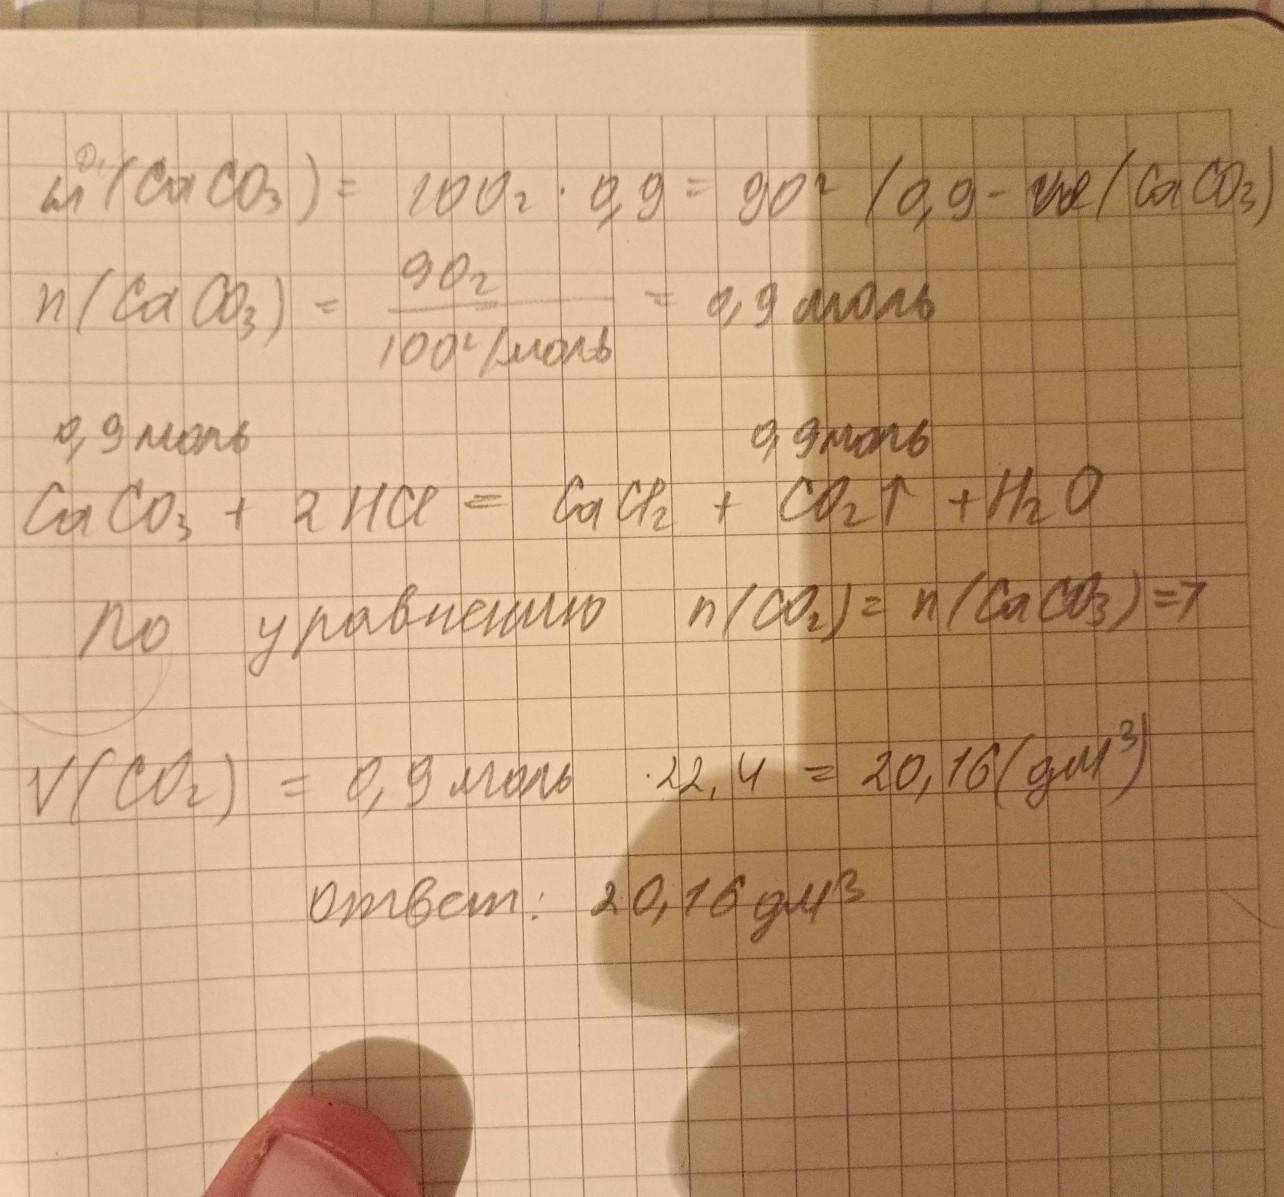 m(CaCO₃) = 100г · 0,9 = 90г / 0,9 - (CaCO₃)
n(CaCO₃) = 90г / 100г/моль = 0,9 моль
0,9 моль 0,9 моль
CaCO₃ + 2HCl = CaCl₂ + CO₂↑ + H₂O
По уравнению n(CO₂) = n(CaCO₃) =>
V(CO₂) = 0,9 моль · 22,4 = 20,16 (дм³)
Ответ: 20,16 дм³